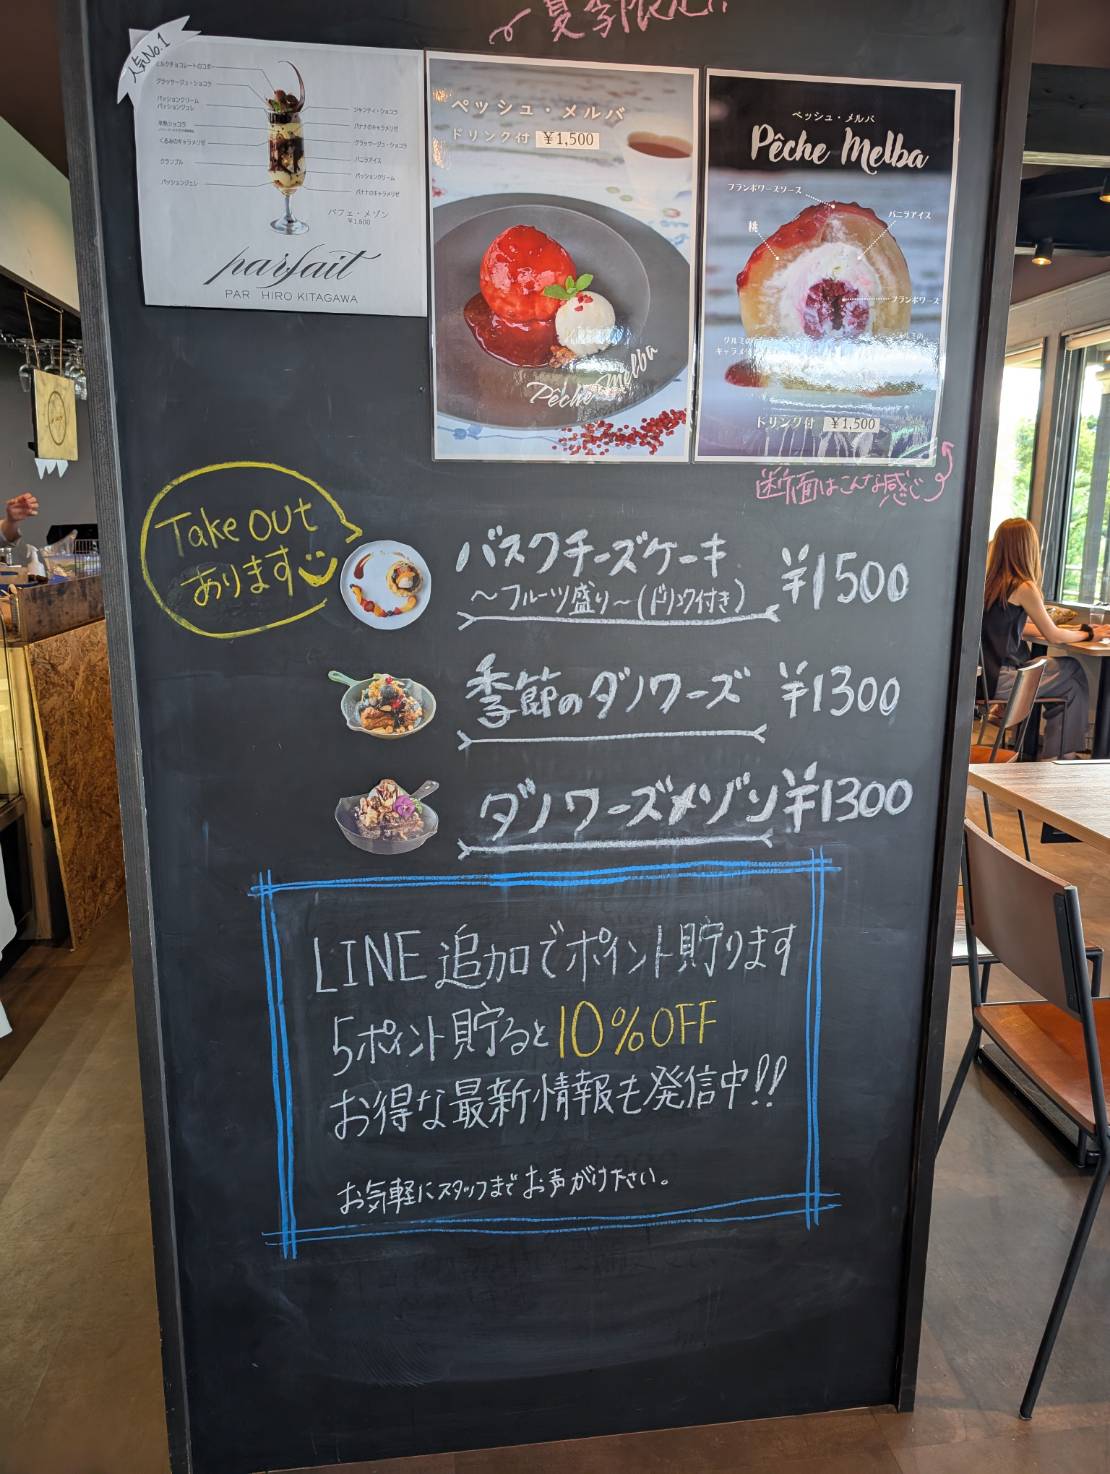 夏季限定!!
人気No.1
グラサージュ・ショコラ
パッションクリーム
パッションジュレ
くるみのキャラメリゼ
クランブル
パッションジュレ
ジャンドゥイ・ショコラ
バナナのキャラメリゼ
グラサージュ・ショコラ
バニラアイス
パッションクリーム
バナナのキャラメリゼ
パフェ・メゾン
¥1,600
parfait
PAR HIRO KITAGAWA
ペッシュ・メルバ
ドリンク付 ¥1,500
Pêche Melba
ペッシュ・メルバ
Pêche Melba
フランボワーズソース
桃
バニラアイス
フランボワーズ
ドリンク付 ¥1,500
断面はこんな感じ
Take out
あります
バスクチーズケーキ
~フルーツ盛り~(ドリンク付き)
¥1500
季節のダノワーズ ¥1300
ダノワーズメゾン ¥1300
LINE追加でポイント貯ります
5ポイント貯ると10%OFF
お得な最新情報も発信中!!
お気軽にスタッフまでお声がけ下さい。